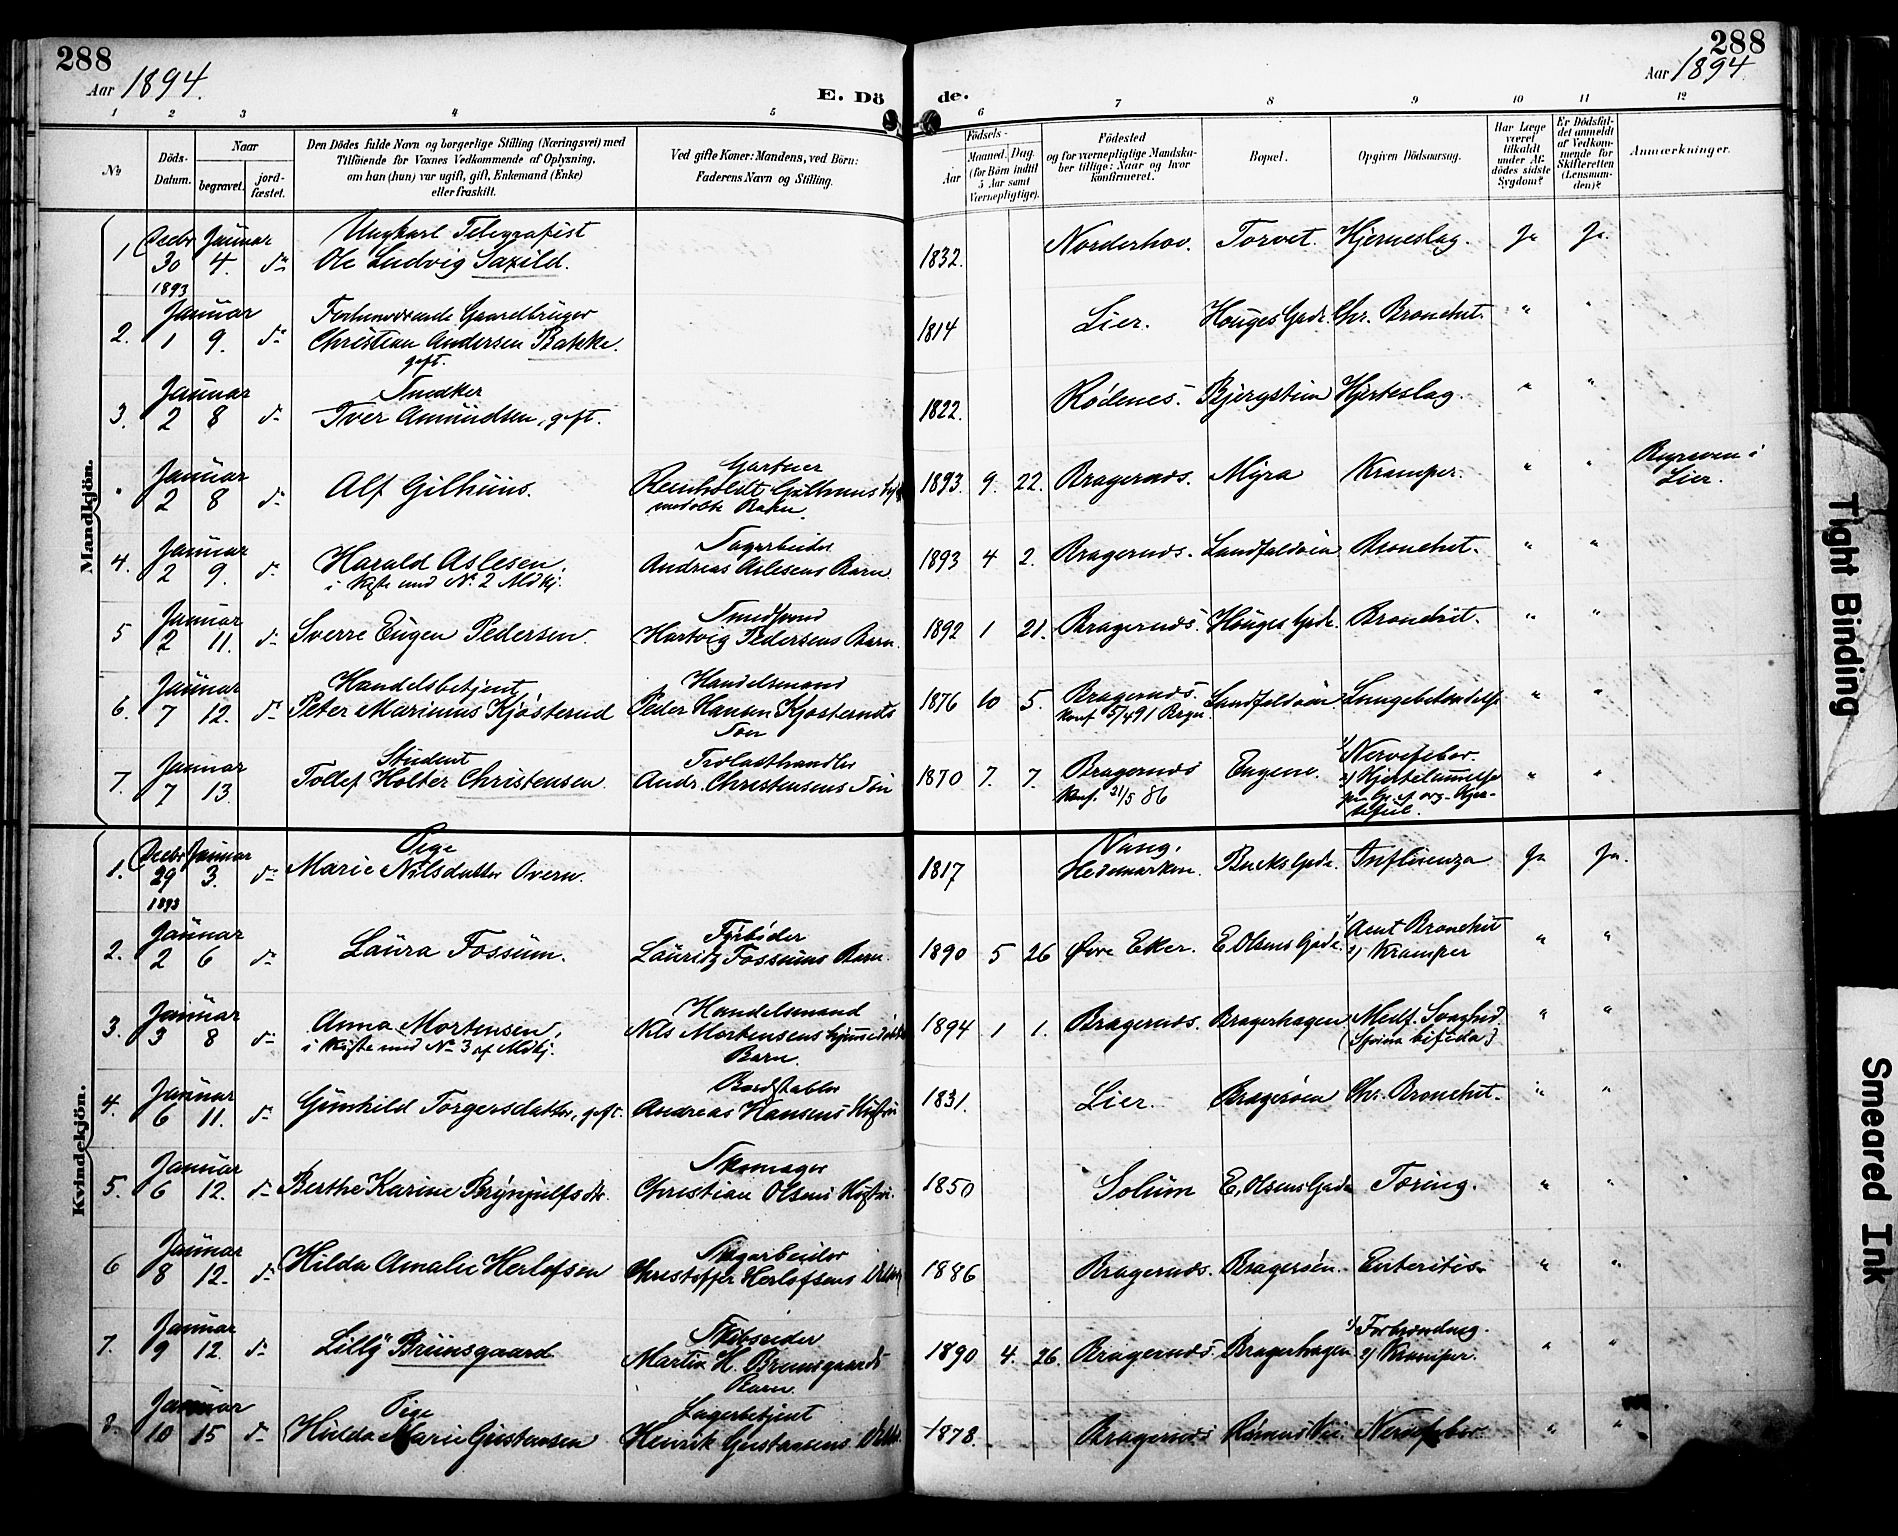 288
Aar 1894.
E. Dö de.
288
Aar 1894.
1 2 3 4 5 6 7 8 9 10 11 12
No
Döds-Datum.
Naar
begravet.
jord-fæstet.
Den Dödes fulde Navn og borgerlige Stilling (Næringsvei) med
Tilföiende for Voxnes Vedkommende af Oplysning,
om han (hun) var ugift, gift, Enkemand (Enke)
eller fraskilt.
Ved gifte Koner: Mandens, ved Börn:
Faderens Navn og Stilling.
Födsels-
Aar
Maaned. Dag.
(for Börn indtil
5 Aar samt
Værnepligtige).
Födested
og for værnepligtige Mandska-
ber tillige: Naar og hvor
konfirmeret.
Bopæl.
Opgiven Dödsaarsag.
Har Læge
været
tilkaldt
under Af-
dödes sidste
Sygdom?
Er Dödsfal-
det anmeldt
af Vedkom-
mende for
Skifteretten
(Lensman-
den)?
Anmærkninger.
Mandkjön.
1 Decbr 30 1893 Januar 4. do Ungkarl Telegrafist
Ole Ludvig Saxild. 1832. Norderhov. Torvet. Hjerneslag. Ja Ja.
2. Januar 1 9. do Forhenværende Gaardbruger
Christian Andersen Bakke. gift. 1814 Lier. Houges Gade. Chr. Bronchit. " "
3. Januar 2 8 do Snedker
Iver Amundsen, gift. 1822. Rødenes. Bjergstien Hjerteslag. " "
" Januar 2 8 do Alf Gilhuus. Gartner
Reinholdt Gilhuus
Barn. 1893. 9. 22. Bragernæs. Myra Kramper. " " Begraven i
Lier.
4. Januar 2 9. do Harald Aslesen,
i Kiste med No 2 Mdkj. Sagarbeider
Andreas Aslesens Barn 1893 4 2. Bragernæs. Landfaldøien Bronchit. " "
5 Januar 2 11. do Sverre Eugen Pedersen. Smedsvend
Hartvig Pedersens Barn. 1892 1 21. Bragernæs. Houges Gade. Bronchit. " "
6. Januar 7 12. do Handelsbetjent
Peter Marinius Kjøsterud Handelsmand
Peder Hansen Kjøsteruds
Søn 1876 10 5. Bragernæs.
Konf. 5/4 91 Brgn. Landfaldøien Lungebetændelse " "
7. Januar 7 13. Student
Tollef Holter Christensen. Trælasthandler
Andr. Christensens Søn 1870 7. 7. Bragernæs
Konf. 21/5 86 Engene. 1) Nervefeber.
2) Hjertelammelse
" "
Kvindekjön.
1. Decbr 29 1893 Januar 3. do Pige
Marie Nilsdatter Overn. 1817 Vang,
Hedemarken. Bucks Gade. Influenza Ja Ja.
2. Januar 2 6 do Laura Fossum. Fyrbøder
Lauritz Fossums Barn. 1890 5 26 Øvre Eker. E. Olsens Gade. 1) Acut Bronchit
2) Kramper " "
3. Januar 3 8 do Anna Mortensen,
i Kiste med No 3 af Mdkj. Handelsmand
Nils Mortensens hjemmedøbte
Barn. 1894 1 1. Bragernæs. Bragerhagen Medf. Svaghed.
(Spina bifida) " "
4. Januar 6 11. do Gunhild Torgersdatter, gift. Bordstabler
Andreas Hansens Kystru 1831. Lier. Bragerøen Chr. Bronchit. " "
5. Januar 6 12. do Berthe Karine Brynjulfsdtr. Skomager
Christian Olsens 1850 Solum E. Olsens Gade Tæring. " "
6 Januar 8 12. do Hilda Amalie Herlofsen Sagarbeider
Christoffer Herlofsens Datter 1886 Bragernæs. Bragerøen. Enteritis " "
7. Januar 9 12. do Lilly Bruusgaard Skibsreder
Martin H. Bruusgaards
Barn. 1890 4. 26. Bragernæs. Bragerhagen 1) Forbrænding.
2) Kramper. " "
8. Januar 10 15 do Pige
Hulda Marie Gustavsen Lagerbetjent
Henrik Gustavsens 1878. Bragernæs Nervefeber " "
Tight Binding
Smeared Ink